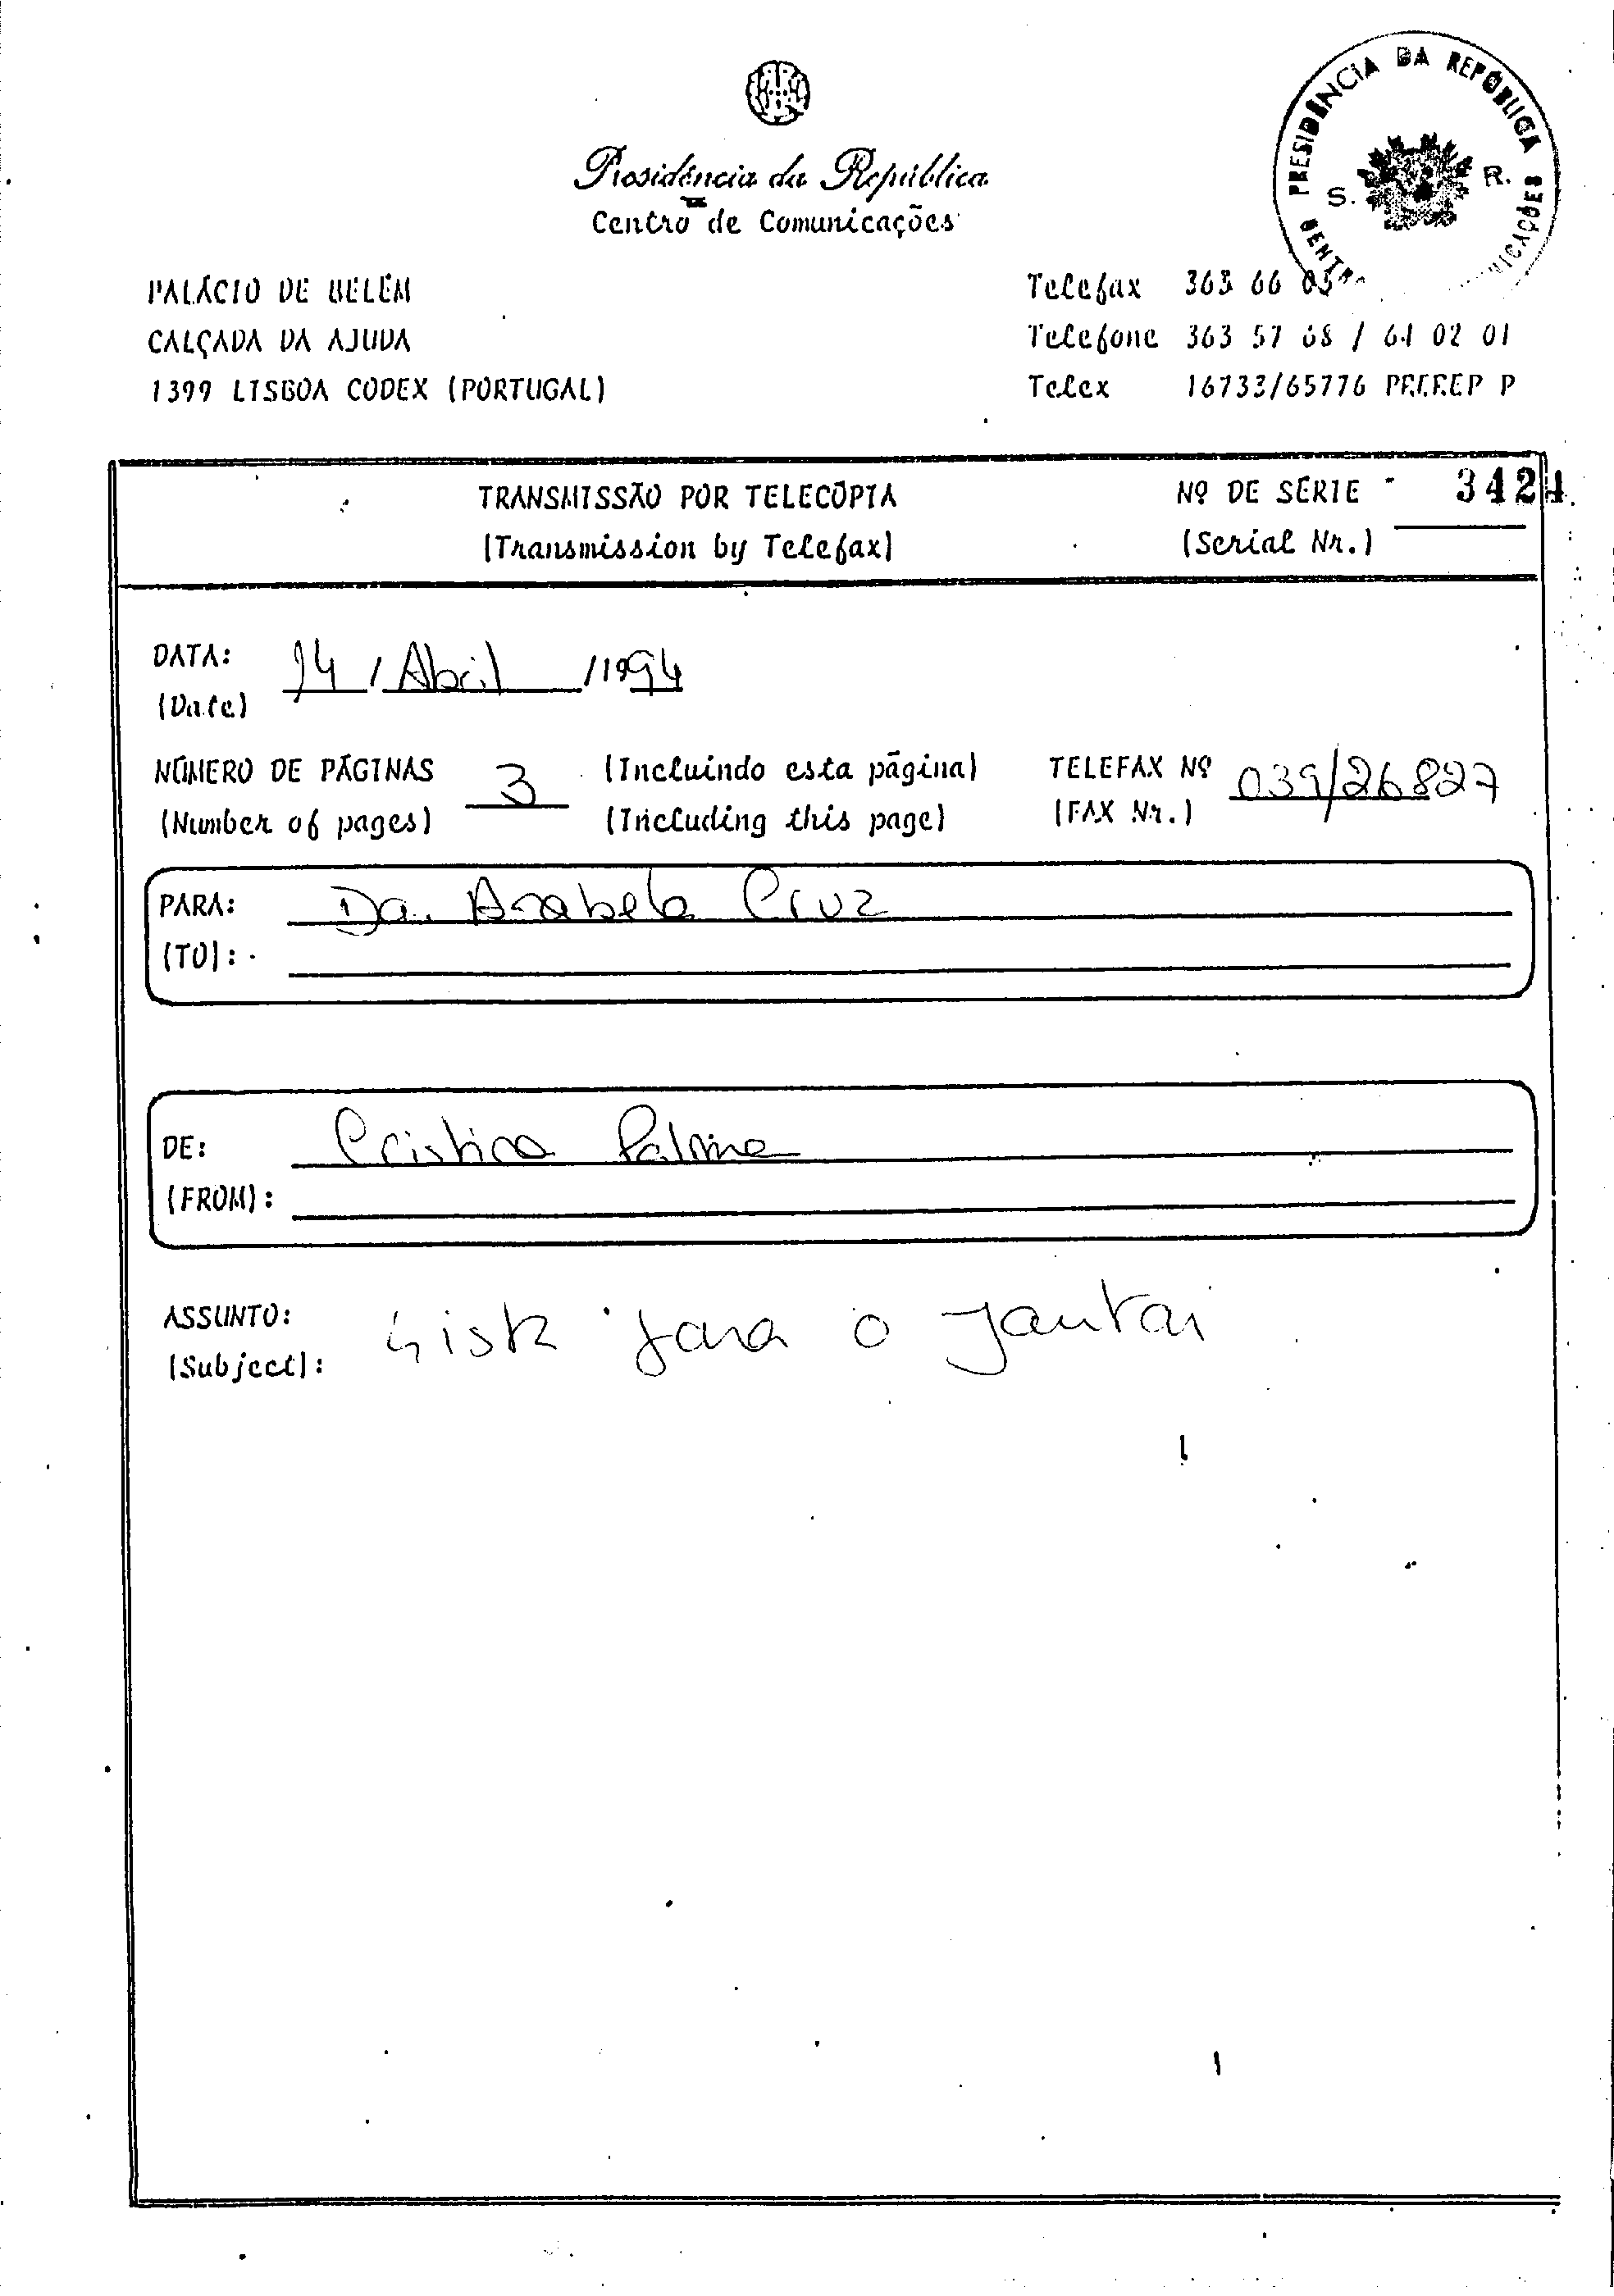 Presidência da República
Centro de Comunicações
PRESIDÊNCIA DA REPÚBLICA
S. R.
PALÁCIO DE BELÉM
CALÇADA DA AJUDA
1399 LISBOA CODEX (PORTUGAL)
Telefax 363 66 03
Telefone 363 57 68 / 61 02 01
Telex 16733/65776 P
TRANSMISSÃO POR TELECÓPIA
(Transmission by Telefax)
Nº DE SÉRIE 3421
(Serial Nr.)
DATA: 14 / Abril / 1994
(Date)
NÚMERO DE PÁGINAS 3 (Incluindo esta página) TELEFAX Nº 039/26827
(Number of pages) (Including this page) (FAX Nr.)
PARA: Da. Anabela Cruz
(TO):
DE: Cristina Palma
(FROM):
ASSUNTO: Lista para o Jantar
(Subject):